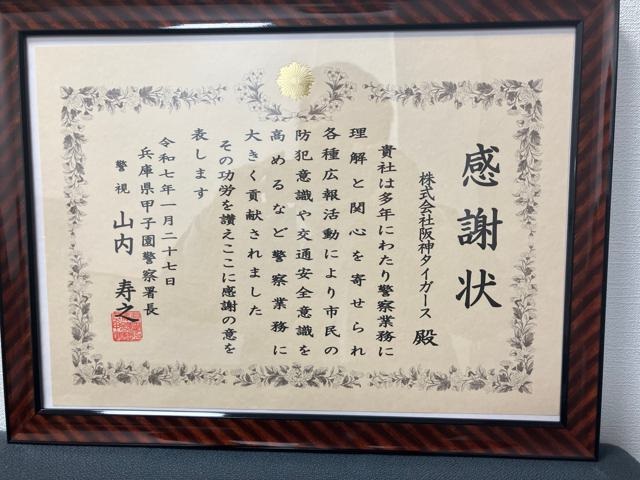 感謝状
株式会社阪神タイガース 殿
貴社は多年にわたり警察業務に
理解と関心を寄せられ
各種広報活動により市民の
防犯意識や交通安全意識を
高めるなど警察業務に
大きく貢献されました
その功労を讃えここに感謝の意を
表します
令和七年一月二十七日
兵庫県甲子園警察署長
警視 山内 寿之